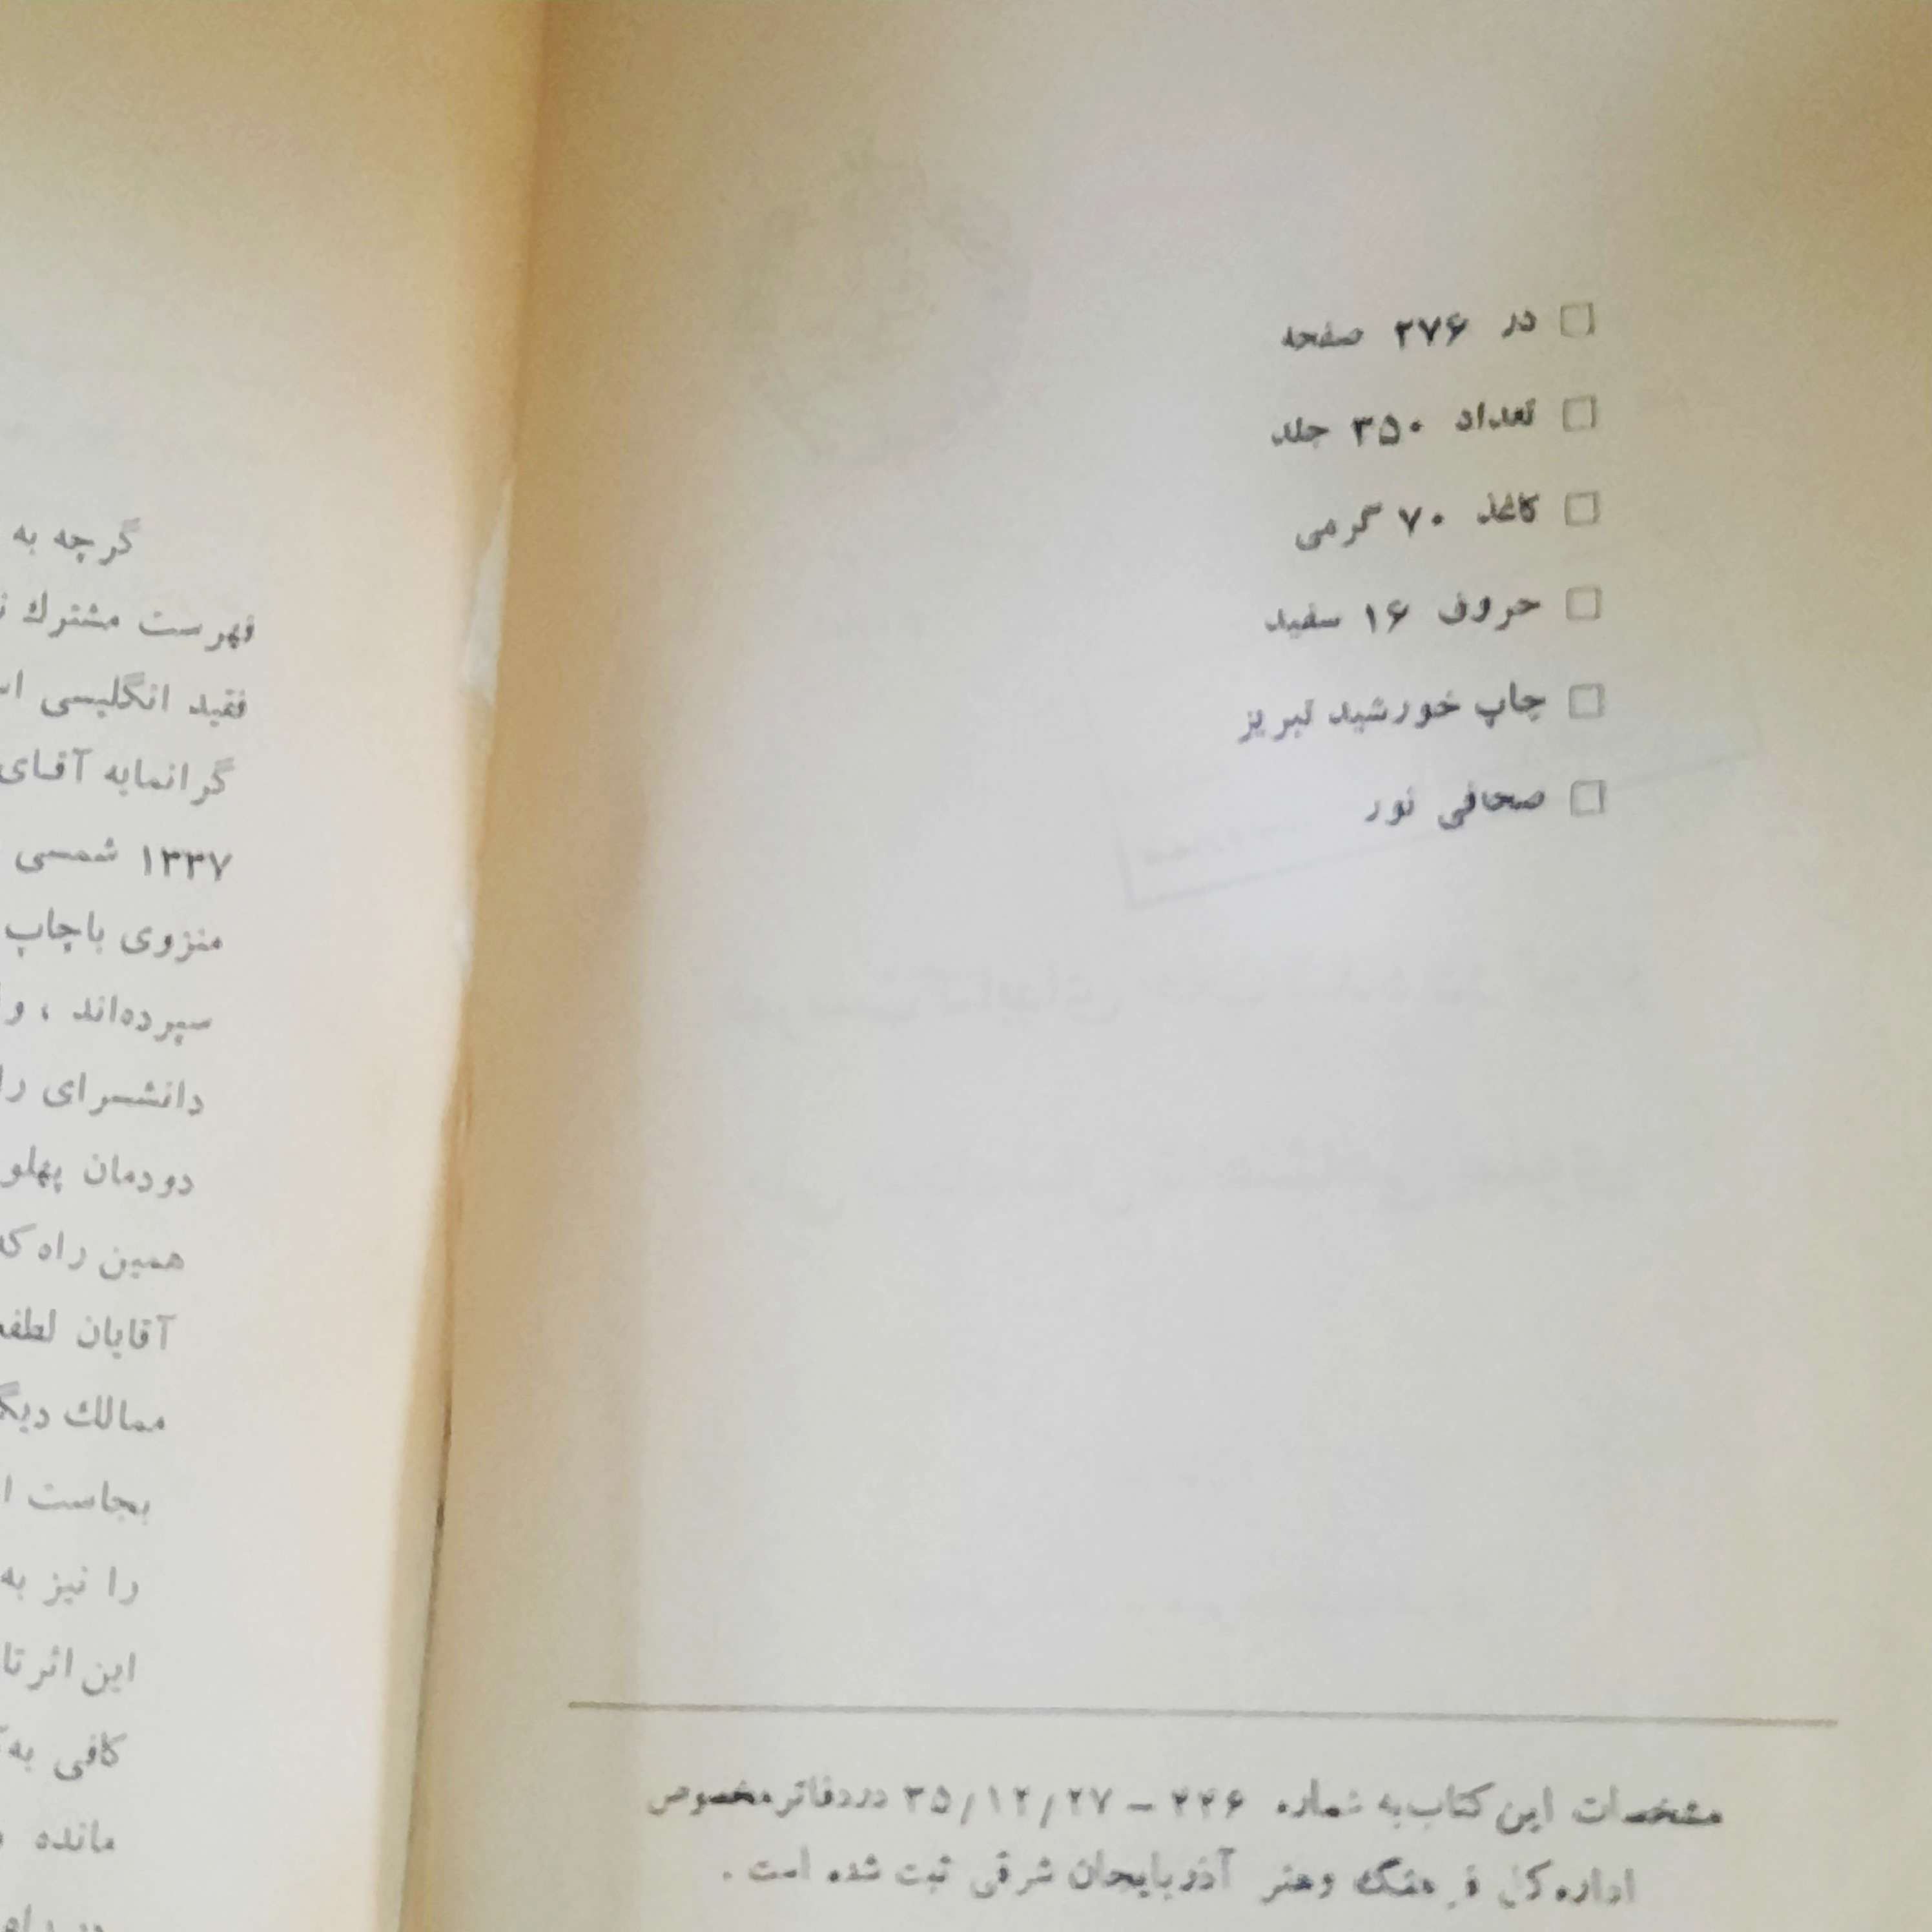 در ۲۷۶ صفحه
تعداد ۳۵۰ جلد
کاغذ ۷۰ گرمی
حروف ۱۶ سفید
چاپ خورشید تبریز
صحافی نور
مشخصات این کتاب به شماره ۲۴۶ – ۳۵/۱۲/۲۷ در دفاتر مخصوص
اداره کل فرهنگ و هنر آذربایجان شرقی ثبت شده است .
گرچه به
فهرست مشترك
فقید انگلیسی
گرانمایه آقای
۱۳۳۷ شمسی
منزوی باچاپ
سپرده‌اند ، و
دانشسرای
دودمان
همین راه
آقایان
ممالك
بجاست
را نیز به
این اثر
کافی
مانده